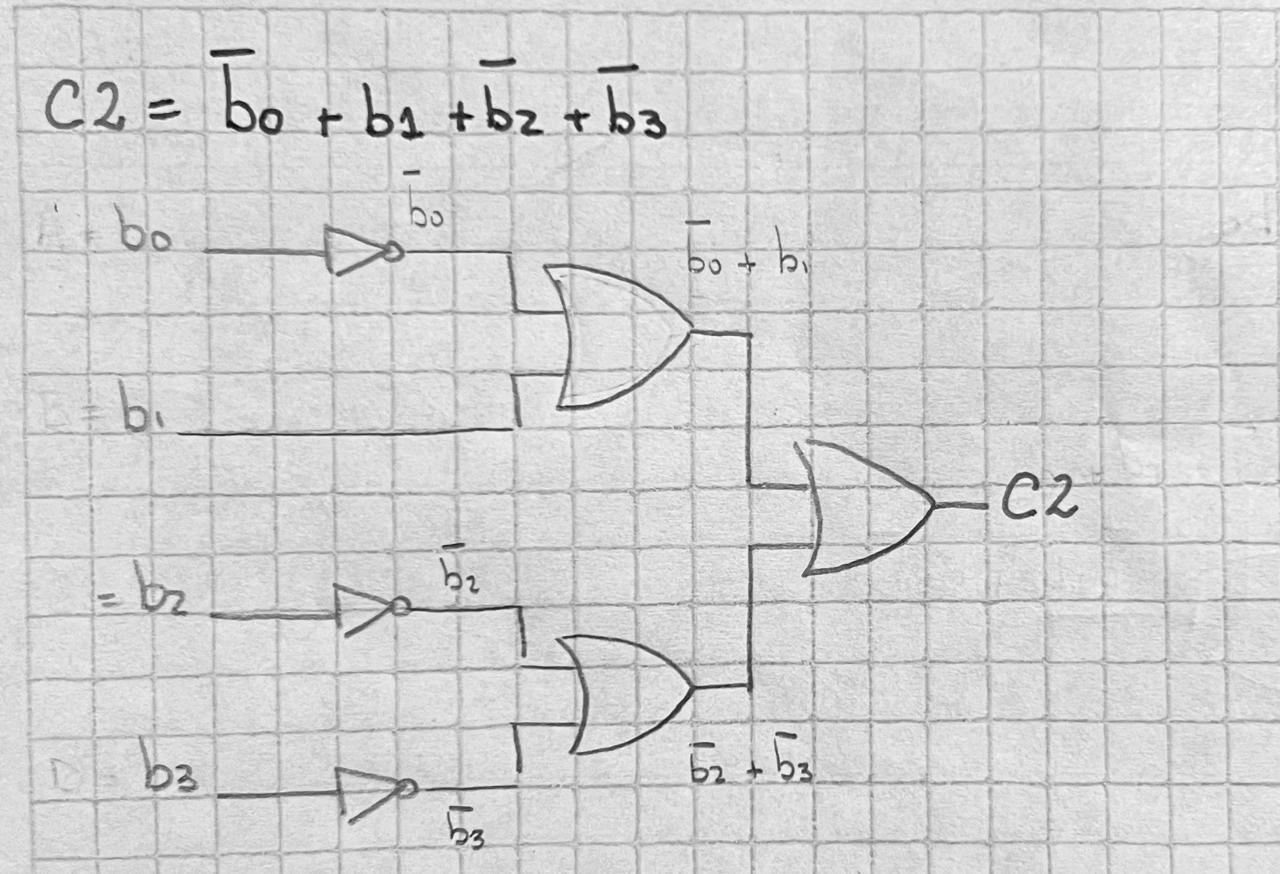 C2 = b̅0 + b1 + b̅2 + b̅3
b̅0
A = b0
b̅0 + b1
B = b1
C2
b̅2
= b2
b̅2 + b̅3
D = b3
b̅3